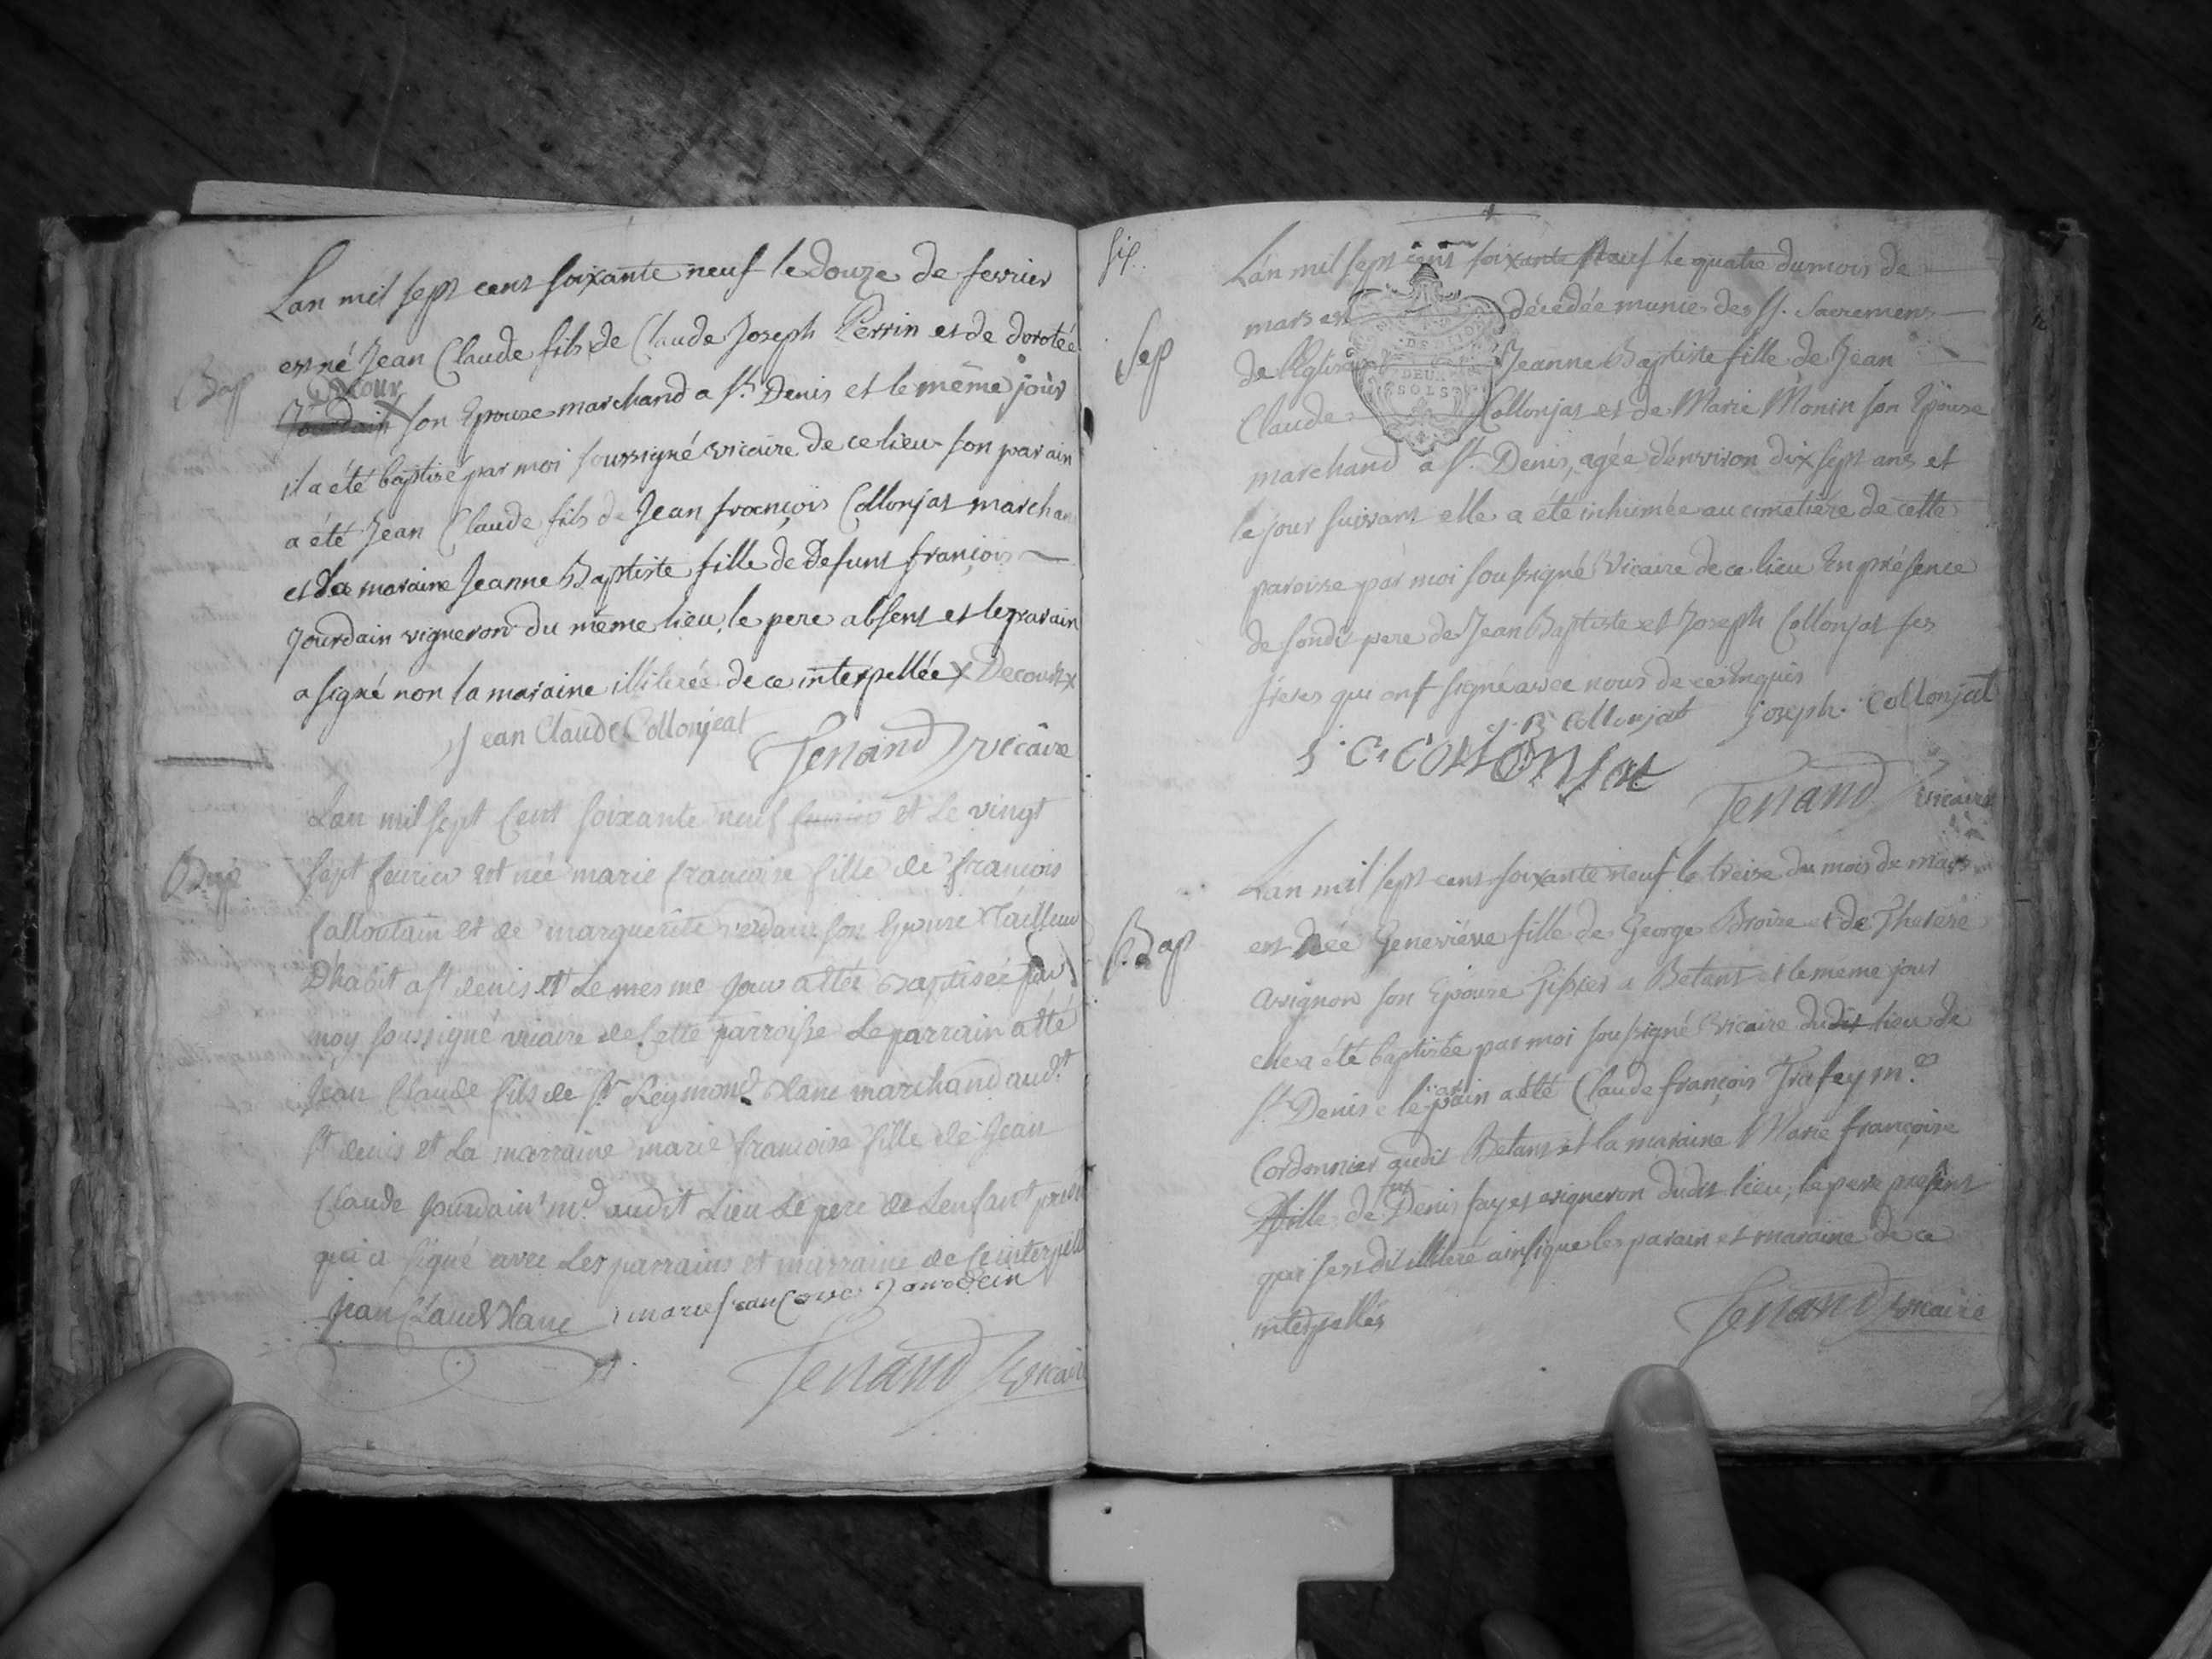 Lan mil sept cent soixante neuf le douze de fevrier
est né Jean Claude fils de Claude Joseph Perrin et de dorotée
Bap
Decour
Jourdain son Epouse marchand a St. Denis et le même jour
il a été baptisé par moi soussigné vicaire de ce lieu son parain
a été Jean Claude fils de Jean françois Collonjat marchan
et la maraine Jeanne Baptiste fille de Defunt françois
Jourdain vigneron du même lieu, le pere absent et le parain
a signé non la maraine illiterée de ce interpellée x Decour x
Jean Claude Collonjeat
Tenand vicaire
Lan mil sept Cent soixante neuf et Le vingt
Bap
sept feurier est née marie francoise fille de francois
et de marguerite son Epouse tailleur
Dhabit a st denis et Le mesme jour a etté Baptisée par
moy soussigné vicaire de Cette parroisse Le parrain a été
Jean Claude fils de Sr Reymond Blanc marchand audt
st denis et La marraine marie francoise fille de Jean
Claude Jourdain md audit Lieu Le pere de Lenfant
qui a signé avec Les parrains et marraine de Ce interpellé
Jean Claude Blanc marie francoise Jourdein
Tenand vicaire
six
Lan mil sept cent soixante neuf le quatre du mois de
mars est décédée munie des St. Sacremens
Sep
de l'Eglise Jeanne Baptiste fille de Jean
Claude Collonjat et de Marie Monin son Epouse
marchand a St. Denis, agée d'environ dix sept ans et
le jour suivant elle a été inhumée au cimetiére de cette
paroisse par moi soussigné Vicaire de ce lieu En présence
de sondit pere de Jean Baptiste et Joseph Collonjat ses
freres qui ont signé avec nous de ce Enquis
J B Collonjat joseph Collonjat
J C COLLONJat
Tenand vicaire
Lan mil sept cent soixante neuf le treise du mois de mars
Bap
est Née Geneviéve fille de George Broise et de Therese
avignon son Epouse tissier a Betans et le meme jour
elle a été baptisée par moi soussigné vicaire dudit lieu de
St. Denis le parain a été Claude françois Trafey me
Cordonnier audit Betans et la maraine Marie françoise
fille de fut Denis fayet vigneron dudit lieu, le pere présent
qui sest dit illiteré ainsi que les parain et maraine de ce
interpellés
Tenand vicaire